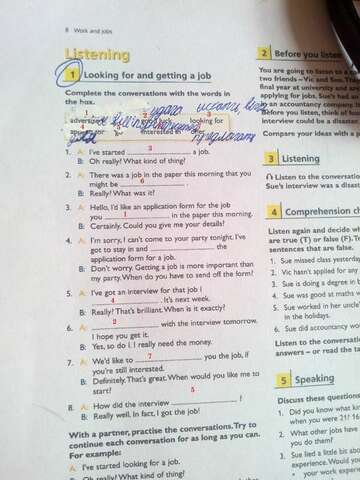 8 Work and jobs
Listening
1 Looking for and getting a job
Complete the conversations with the words in
the box.
1 2 3
advertised good luck looking for
interested in offer
1. A: I've started 3 a job.
B: Oh really? What kind of thing?
2. A: There was a job in the paper this morning that you
might be 6 .
B: Really? What was it?
3. A: Hello, I'd like an application form for the job
you 1 in the paper this morning.
B: Certainly. Could you give me your details?
4. A: I'm sorry, I can't come to your party tonight. I've
got to stay in and the
application form for a job.
B: Don't worry. Getting a job is more important than
my party. When do you have to send off the form?
5. A: I've got an interview for that job I
4 . It's next week.
B: Really? That's brilliant. When is it exactly?
6. A: 2 with the interview tomorrow.
I hope you get it.
B: Yes, so do I. I really need the money.
7. A: We'd like to 7 you the job, if
you're still interested.
B: Definitely. That's great. When would you like me to
start?
5
8. A: How did the interview ?
B: Really well. In fact, I got the job!
With a partner, practise the conversations. Try to
continue each conversation for as long as you can.
For example:
A: I've started looking for a job.
B: Oh really? What kind of thing?
2 Before you listen
You are going to listen to a
two friends – Vic and Sue. Th
final year at university and are
applying for jobs. Sue's had an
to an accountancy company.
Before you listen, think of four
interview could be a disaster
Compare your ideas with a p
3 Listening
Listen to the conversation
Sue's interview was a disaster
4 Comprehension ch
Listen again and decide wh
are true (T) or false (F). Tr
sentences that are false.
1 Sue missed class yesterday
2 Vic hasn't applied for any
3 Sue is doing a degree in b
4 Sue was good at maths w
5 Sue worked in her uncle'
in the holidays.
6 Sue did accountancy wor
Listen to the conversatio
answers – or read the ta
5 Speaking
Discuss these questions
1 Did you know what kin
when you were 21? 16
2 What other jobs have
you do them?
3 Sue lied a little bit abo
experience. Would you
• your work experience